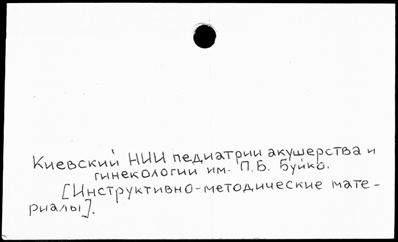 Киевский НИИ педиатрии акушерства и
гинекологии им. П.Б. Буйко.
[Инструктивно-методические мате-
риалы].